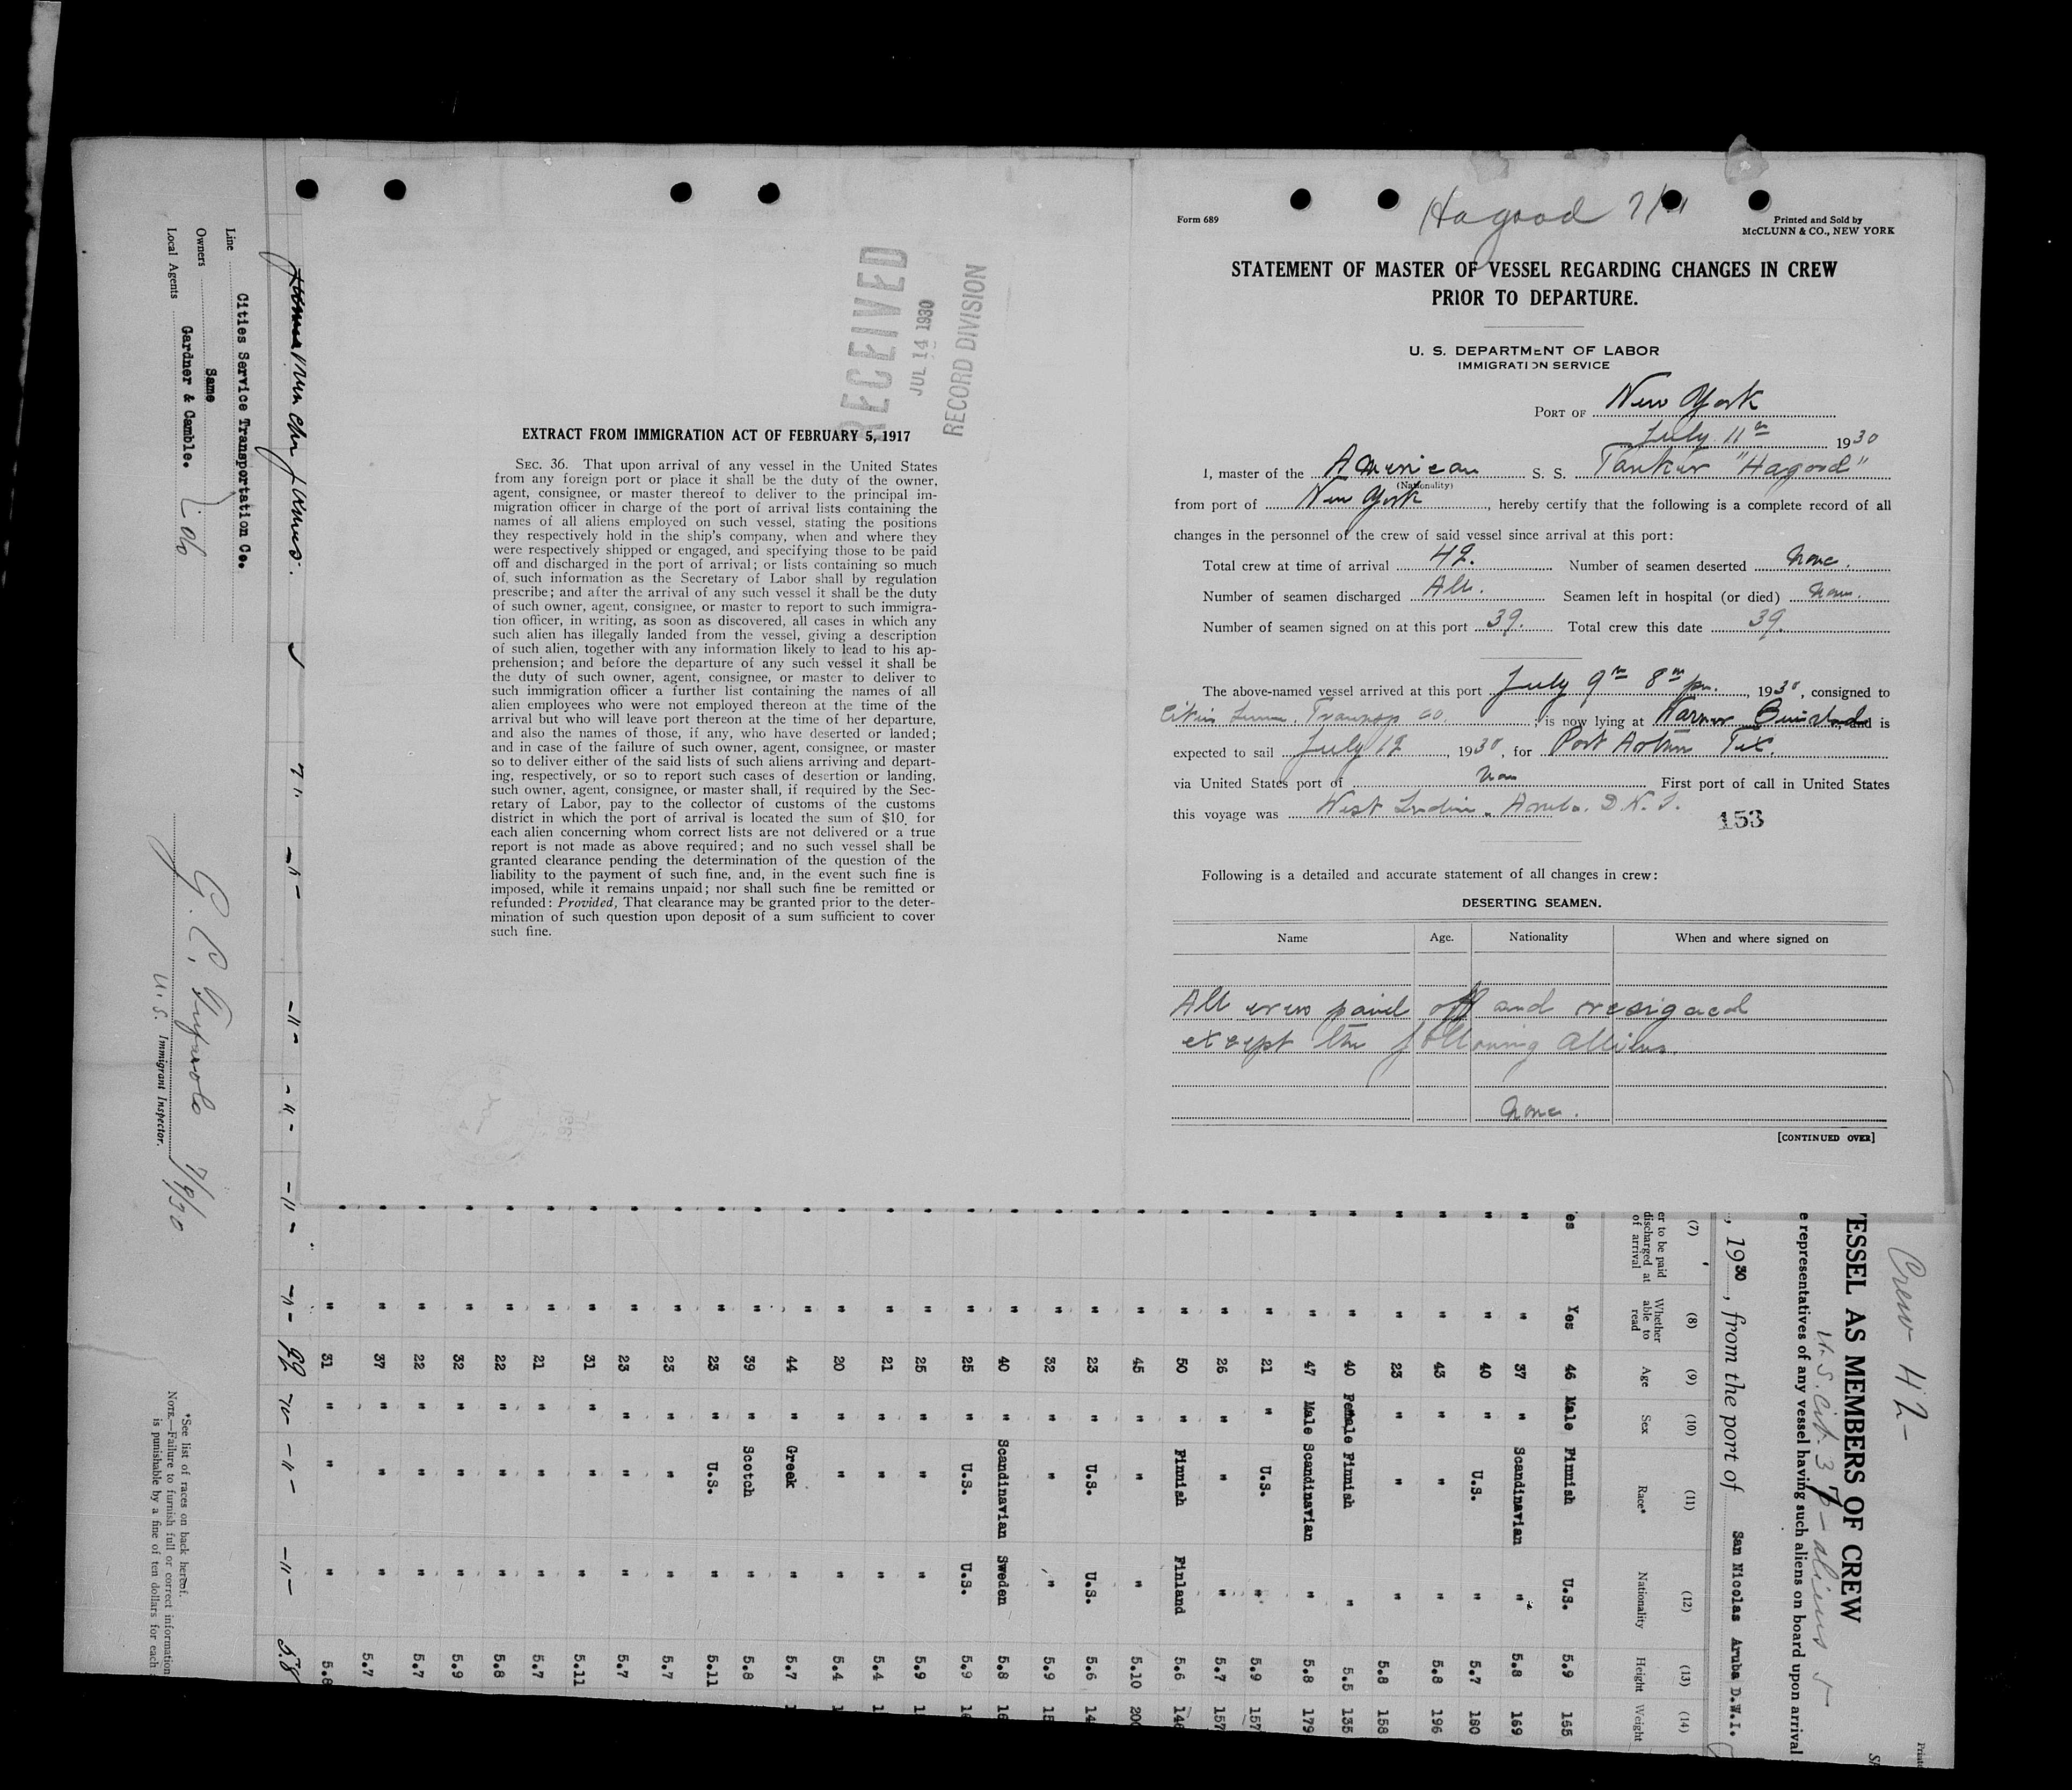 Form 689
Hagood 7/11
Printed and Sold by
McCLUNN & CO., NEW YORK
STATEMENT OF MASTER OF VESSEL REGARDING CHANGES IN CREW
PRIOR TO DEPARTURE.
U. S. DEPARTMENT OF LABOR
IMMIGRATION SERVICE
PORT OF New York
July 11th 1930
I, master of the American S. S. Tanker "Hagood"
(Nationality)
from port of New York, hereby certify that the following is a complete record of all
changes in the personnel of the crew of said vessel since arrival at this port:
Total crew at time of arrival 42. Number of seamen deserted None.
Number of seamen discharged All. Seamen left in hospital (or died) None.
Number of seamen signed on at this port 39. Total crew this date 39
The above-named vessel arrived at this port July 9th 8 pm., 1930, consigned to
Cities Transp Co. ; is now lying at and is
expected to sail July 12, 1930, for Port Arthur Tex.
via United States port of None First port of call in United States
this voyage was West Indies. Aruba. D.W.I.
153
Following is a detailed and accurate statement of all changes in crew:
DESERTING SEAMEN.
Name Age. Nationality When and where signed on
All crew paid off and resigned
except the following Alliens.
None.
[CONTINUED OVER]
RECEIVED
JUL 14 1930
RECORD DIVISION
EXTRACT FROM IMMIGRATION ACT OF FEBRUARY 5, 1917
SEC. 36. That upon arrival of any vessel in the United States
from any foreign port or place it shall be the duty of the owner,
agent, consignee, or master thereof to deliver to the principal im-
migration officer in charge of the port of arrival lists containing the
names of all aliens employed on such vessel, stating the positions
they respectively hold in the ship's company, when and where they
were respectively shipped or engaged, and specifying those to be paid
off and discharged in the port of arrival; or lists containing so much
of such information as the Secretary of Labor shall by regulation
prescribe; and after the arrival of any such vessel it shall be the duty
of such owner, agent, consignee, or master to report to such immigra-
tion officer, in writing, as soon as discovered, all cases in which any
such alien has illegally landed from the vessel, giving a description
of such alien, together with any information likely to lead to his ap-
prehension; and before the departure of any such vessel it shall be
the duty of such owner, agent, consignee, or master to deliver to
such immigration officer a further list containing the names of all
alien employees who were not employed thereon at the time of the
arrival but who will leave port thereon at the time of her departure,
and also the names of those, if any, who have deserted or landed;
and in case of the failure of such owner, agent, consignee, or master
so to deliver either of the said lists of such aliens arriving and depart-
ing, respectively, or so to report such cases of desertion or landing,
such owner, agent, consignee, or master shall, if required by the Sec-
retary of Labor, pay to the collector of customs of the customs
district in which the port of arrival is located the sum of $10. for
each alien concerning whom correct lists are not delivered or a true
report is not made as above required; and no such vessel shall be
granted clearance pending the determination of the question of the
liability to the payment of such fine, and, in the event such fine is
imposed, while it remains unpaid; nor shall such fine be remitted or
refunded: Provided, That clearance may be granted prior to the deter-
mination of such question upon deposit of a sum sufficient to cover
such fine.
Crew 42-
ESSEL AS MEMBERS OF CREW
U.S. Cit. 37 - aliens 5
e representatives of any vessel having such aliens on board upon arrival
, 1930, from the port of San Nicolas Aruba D.W.I.
(7) (8) (9) (10) (11) (12) (13) (14)
er to be paid discharged at of arrival Whether able to read Age Sex Race* Nationality Height Weight
es Yes 46 Male Finnish U.S. 5.9 165
" " 37 " Scandinavian " 5.8 169
" " 40 " U.S. " 5.7 180
" " 43 " " " 5.8 196
" " 23 " " " 5.8 158
" " 40 Female Finnish " 5.5 135
" " 47 Male Scandinavian " 5.8 179
" " 21 " U.S. " 5.9 157
" " 26 " " " 5.7 157
" " 50 " Finnish Finland 5.6 146
" " 45 " " " 5.10 200
" " 23 " U.S. U.S. 5.6 14
" " 32 " " " 5.9 15
" " 40 " Scandinavian Sweden 5.8 16
" " 25 " U.S. U.S. 5.9 16
" " 25 " " " 5.9 1
" " 21 " " " 5.4 1
" " 20 " " " 5.4 1
" " 44 " Greek " 5.7 1
" " 39 " Scotch " 5.8
" " 23 " U.S. " 5.11
" " 23 " " " 5.7
" " 23 " " " 5.7
" " 31 " " " 5.11
" " 21 " " " 5.7
" " 22 " " " 5.8
" " 32 " " " 5.9
" " 22 " " " 5.7
" " 37 " " " 5.7
" " 31 " " " 5.8
Line Cities Service Transportation Co.
Owners Same
Local Agents Gardner & Gamble.
7/9/30
U. S. Immigrant Inspector.
*See list of races on back hereof.
NOTE.—Failure to furnish full or correct information
is punishable by a fine of ten dollars for each